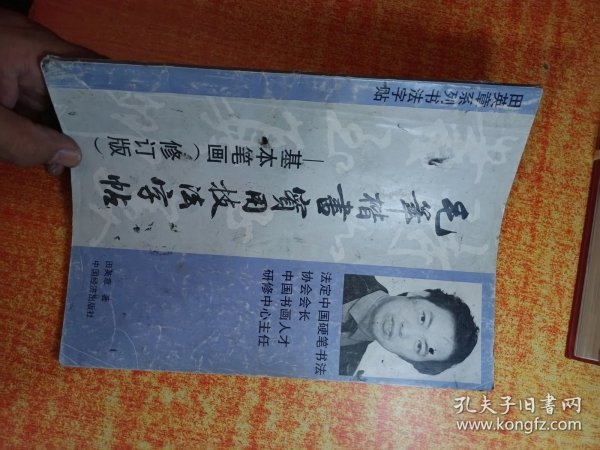 田英章系列书法字帖
毛筆楷書實用技法字帖
—基本笔画（修订版）
法定中国硬笔书法
协会会长
中国书画人才
研修中心主任
田英章 著
中国经济出版社
孔夫子旧书网
www.kongfz.com